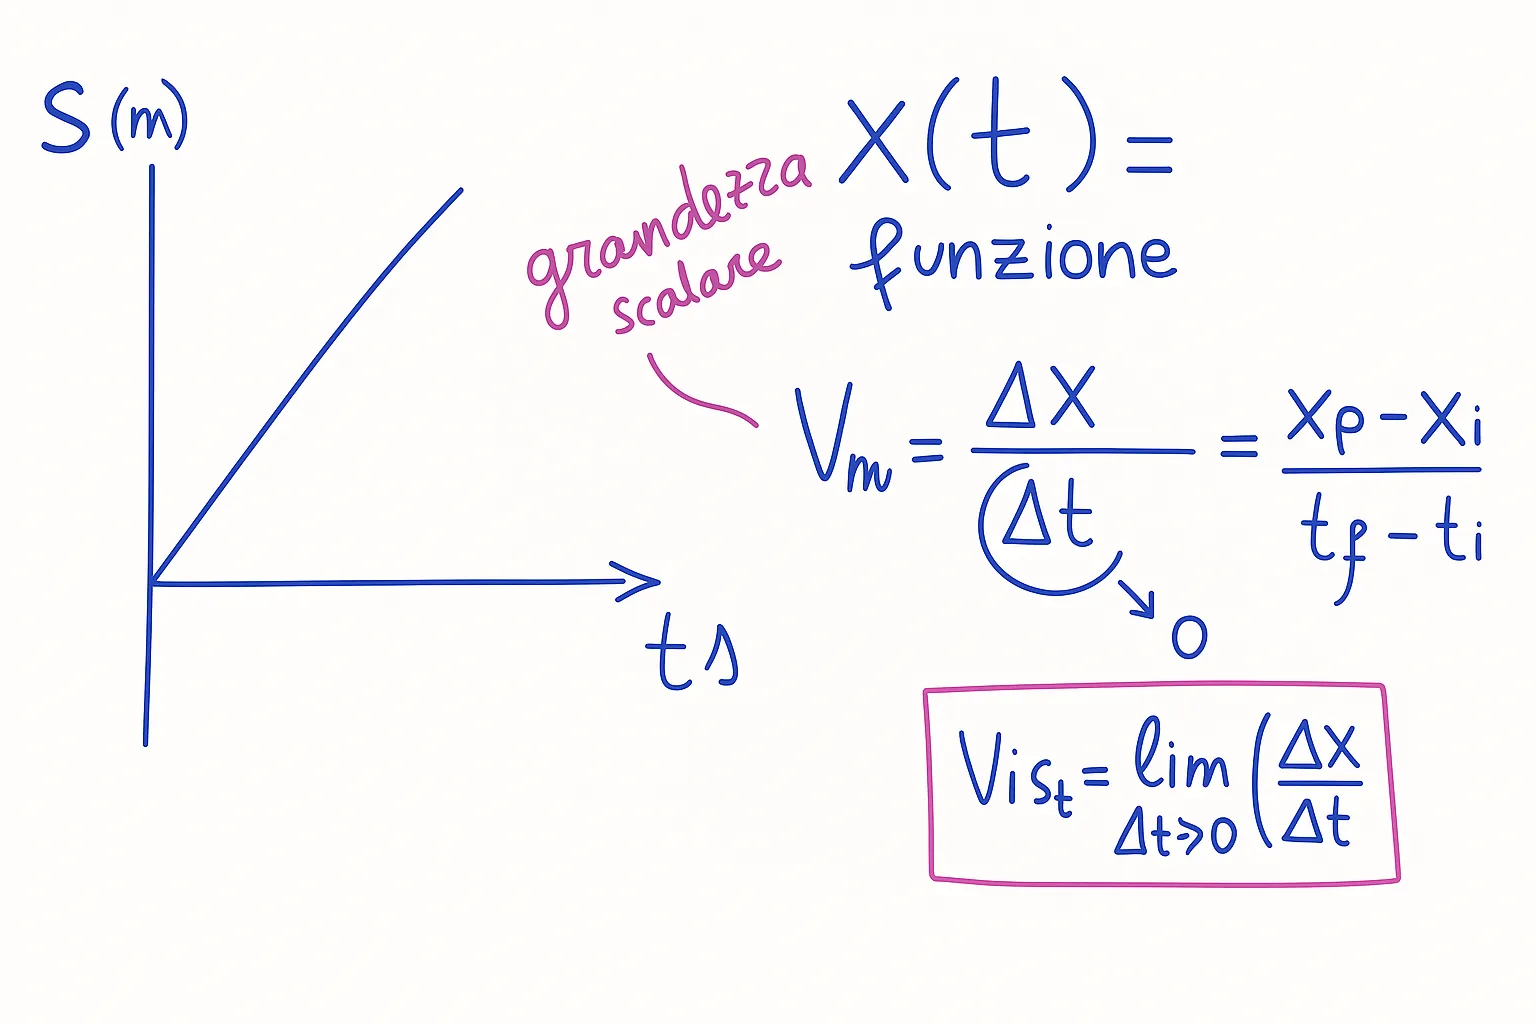 S (m)
t s
grandezza
scalare
x(t) =
funzione
Vm = Δx / Δt = xf - xi / tf - ti
0
Vist = lim Δt→0 (Δx / Δt